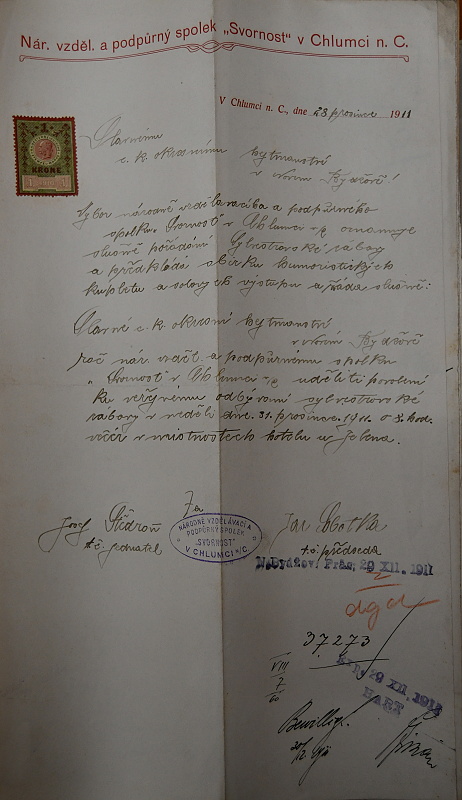 Nár. vzděl. a podpůrný spolek „Svornost" v Chlumci n. C.
V Chlumci n. C., dne 28 prosince 1911
KRONE
Slavnému
c. k. okresnímu hejtmanství
v Novém Bydžově!
Výbor národně vzdělávacího a podpůrného
spolku „Svornost" v Chlumci n/C oznamuje
slušně pořádání Sylvestrovské zábavy
a předkládá sbírku humoristických
kupletů a solových výstupů a žádá slušně:
Slavné c. k. okresní hejtmanství
v Novém Bydžově
rač nár. vzděl. a podpůrnému spolku
„Svornost" v Chlumci n/C uděliti povolení
ku veřejnému odbývání sylvestrovské
zábavy v neděli dne 31. prosince 1911 o 8. hod.
večer v místnostech hotelu u Jelena.
Za
NÁRODNĚ VZDĚLÁVACÍ A
PODPŮRNÝ SPOLEK
„SVORNOST"
V CHLUMCI N/C
Josef
t. č. jednatel
Jan
t. č. předseda
N. Bydžov. Präs. 29 XII. 1911
2
37273
VIII
7
29 XII. 1911
HART
Bewillig.